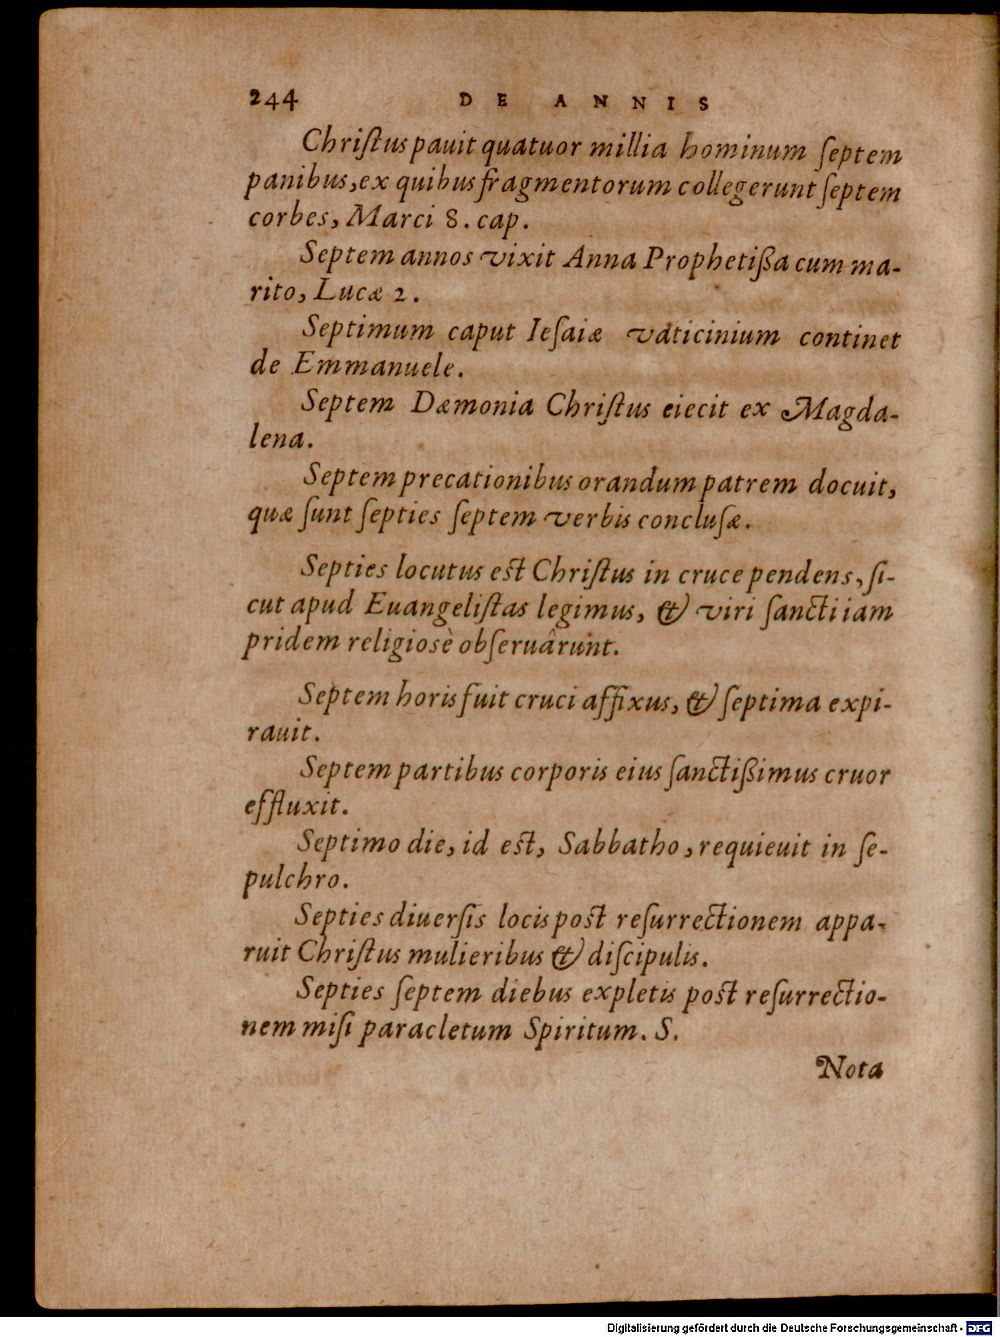 244 DE ANNIS
Chriſtus pauit quatuor millia hominum ſeptem
panibus, ex quibus fragmentorum collegerunt ſeptem
corbes, Marci 8. cap.
Septem annos vixit Anna Prophetiſſa cum ma-
rito, Lucæ 2.
Septimum caput Ieſaiæ vaticinium continet
de Emmanuele.
Septem Dæmonia Chriſtus eiecit ex Magda-
lena.
Septem precationibus orandum patrem docuit,
quæ ſunt ſepties ſeptem verbis concluſæ.
Septies locutus eſt Chriſtus in cruce pendens, ſi-
cut apud Euangeliſtas legimus, & viri ſancti iam
pridem religiosè obſeruârunt.
Septem horis fuit cruci affixus, & ſeptima expi-
rauit.
Septem partibus corporis eius ſanctiſſimus cruor
effluxit.
Septimo die, id eſt, Sabbatho, requieuit in ſe-
pulchro.
Septies diuerſis locis poſt reſurrectionem appa-
ruit Chriſtus mulieribus & diſcipulis.
Septies ſeptem diebus expletis poſt reſurrectio-
nem miſi paracletum Spiritum. S.
Nota
Digitalisierung gefördert durch die Deutsche Forschungsgemeinschaft - DFG